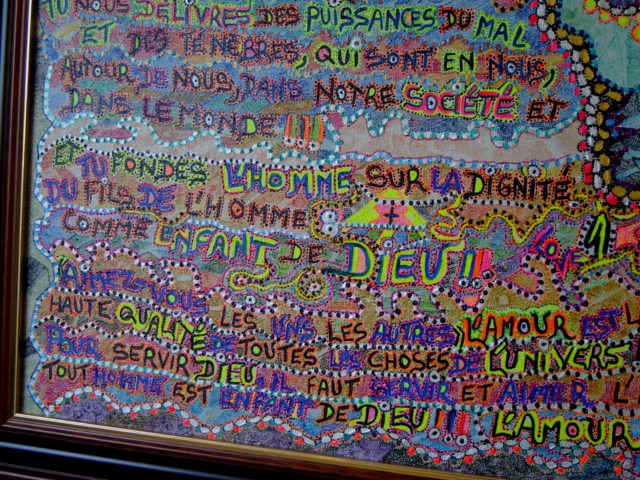 TU NOUS DELIVRES DES PUISSANCES DU MAL
ET DES TENEBRES, QUI SONT EN NOUS,
AUTOUR DE NOUS, DANS NOTRE SOCIÉTÉ ET
DANS LE MONDE !!!
ET TU FONDES L'HOMME SUR LA DIGNITÉ
DU FILS DE L'HOMME
COMME ENFANT DE DIEU !! LOVE 1
"AIMEZ-VOUS LES UNS LES AUTRES, L'AMOUR EST
HAUTE QUALITÉ DE TOUTES LES CHOSES DE L'UNIVERS
POUR SERVIR DIEU, IL FAUT SERVIR ET AIMER
TOUT HOMME EST ENFANT DE DIEU !! L'AMOUR